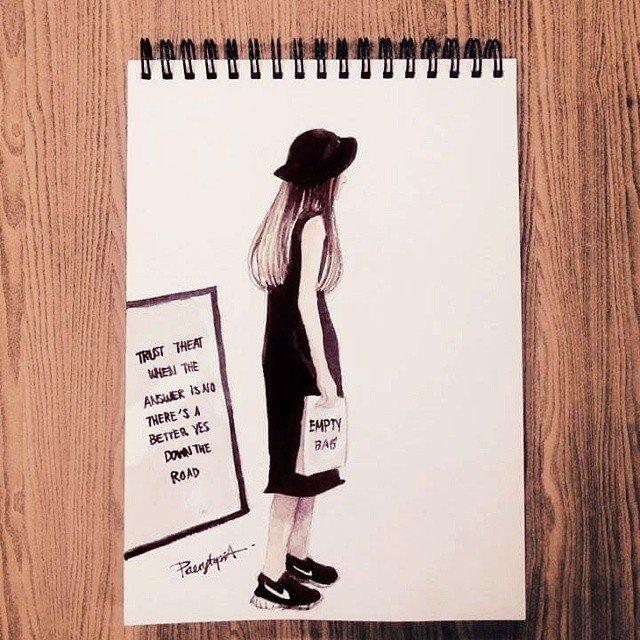 TRUST THEAT
WHEN THE
ANSWER IS NO
THERE'S A
BETTER YES
DOWN THE
ROAD
EMPTY
BAG